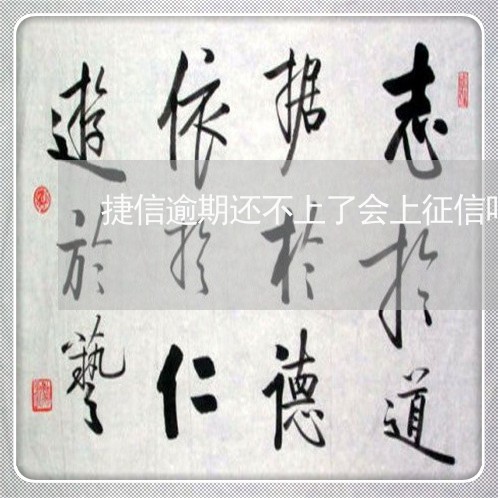 志於道
据於德
依於仁
遊於藝
捷信逾期还不上了会上征信